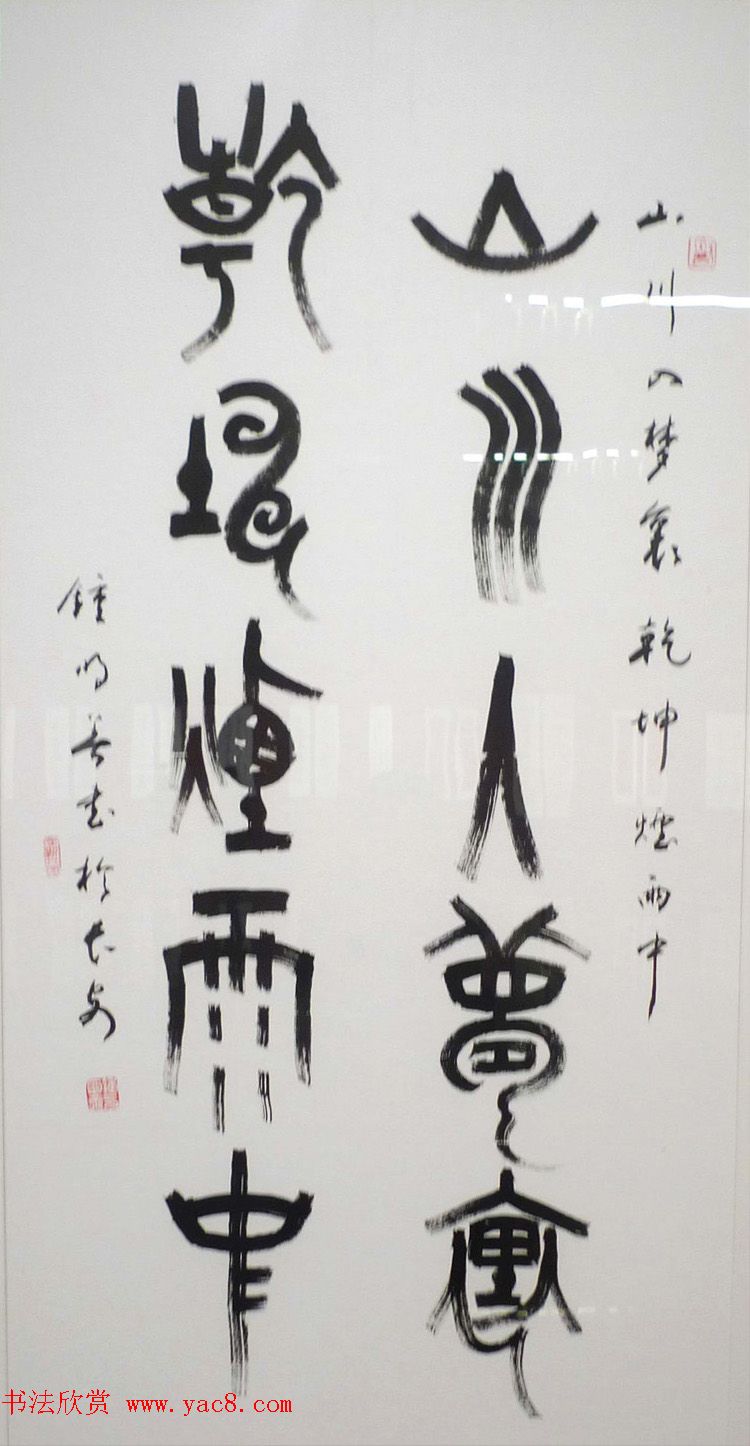 山川入梦裏乾坤煙雨中
山川入夢裏
乾坤煙雨中
鍾明善书於长安
书法欣赏 www.yac8.com